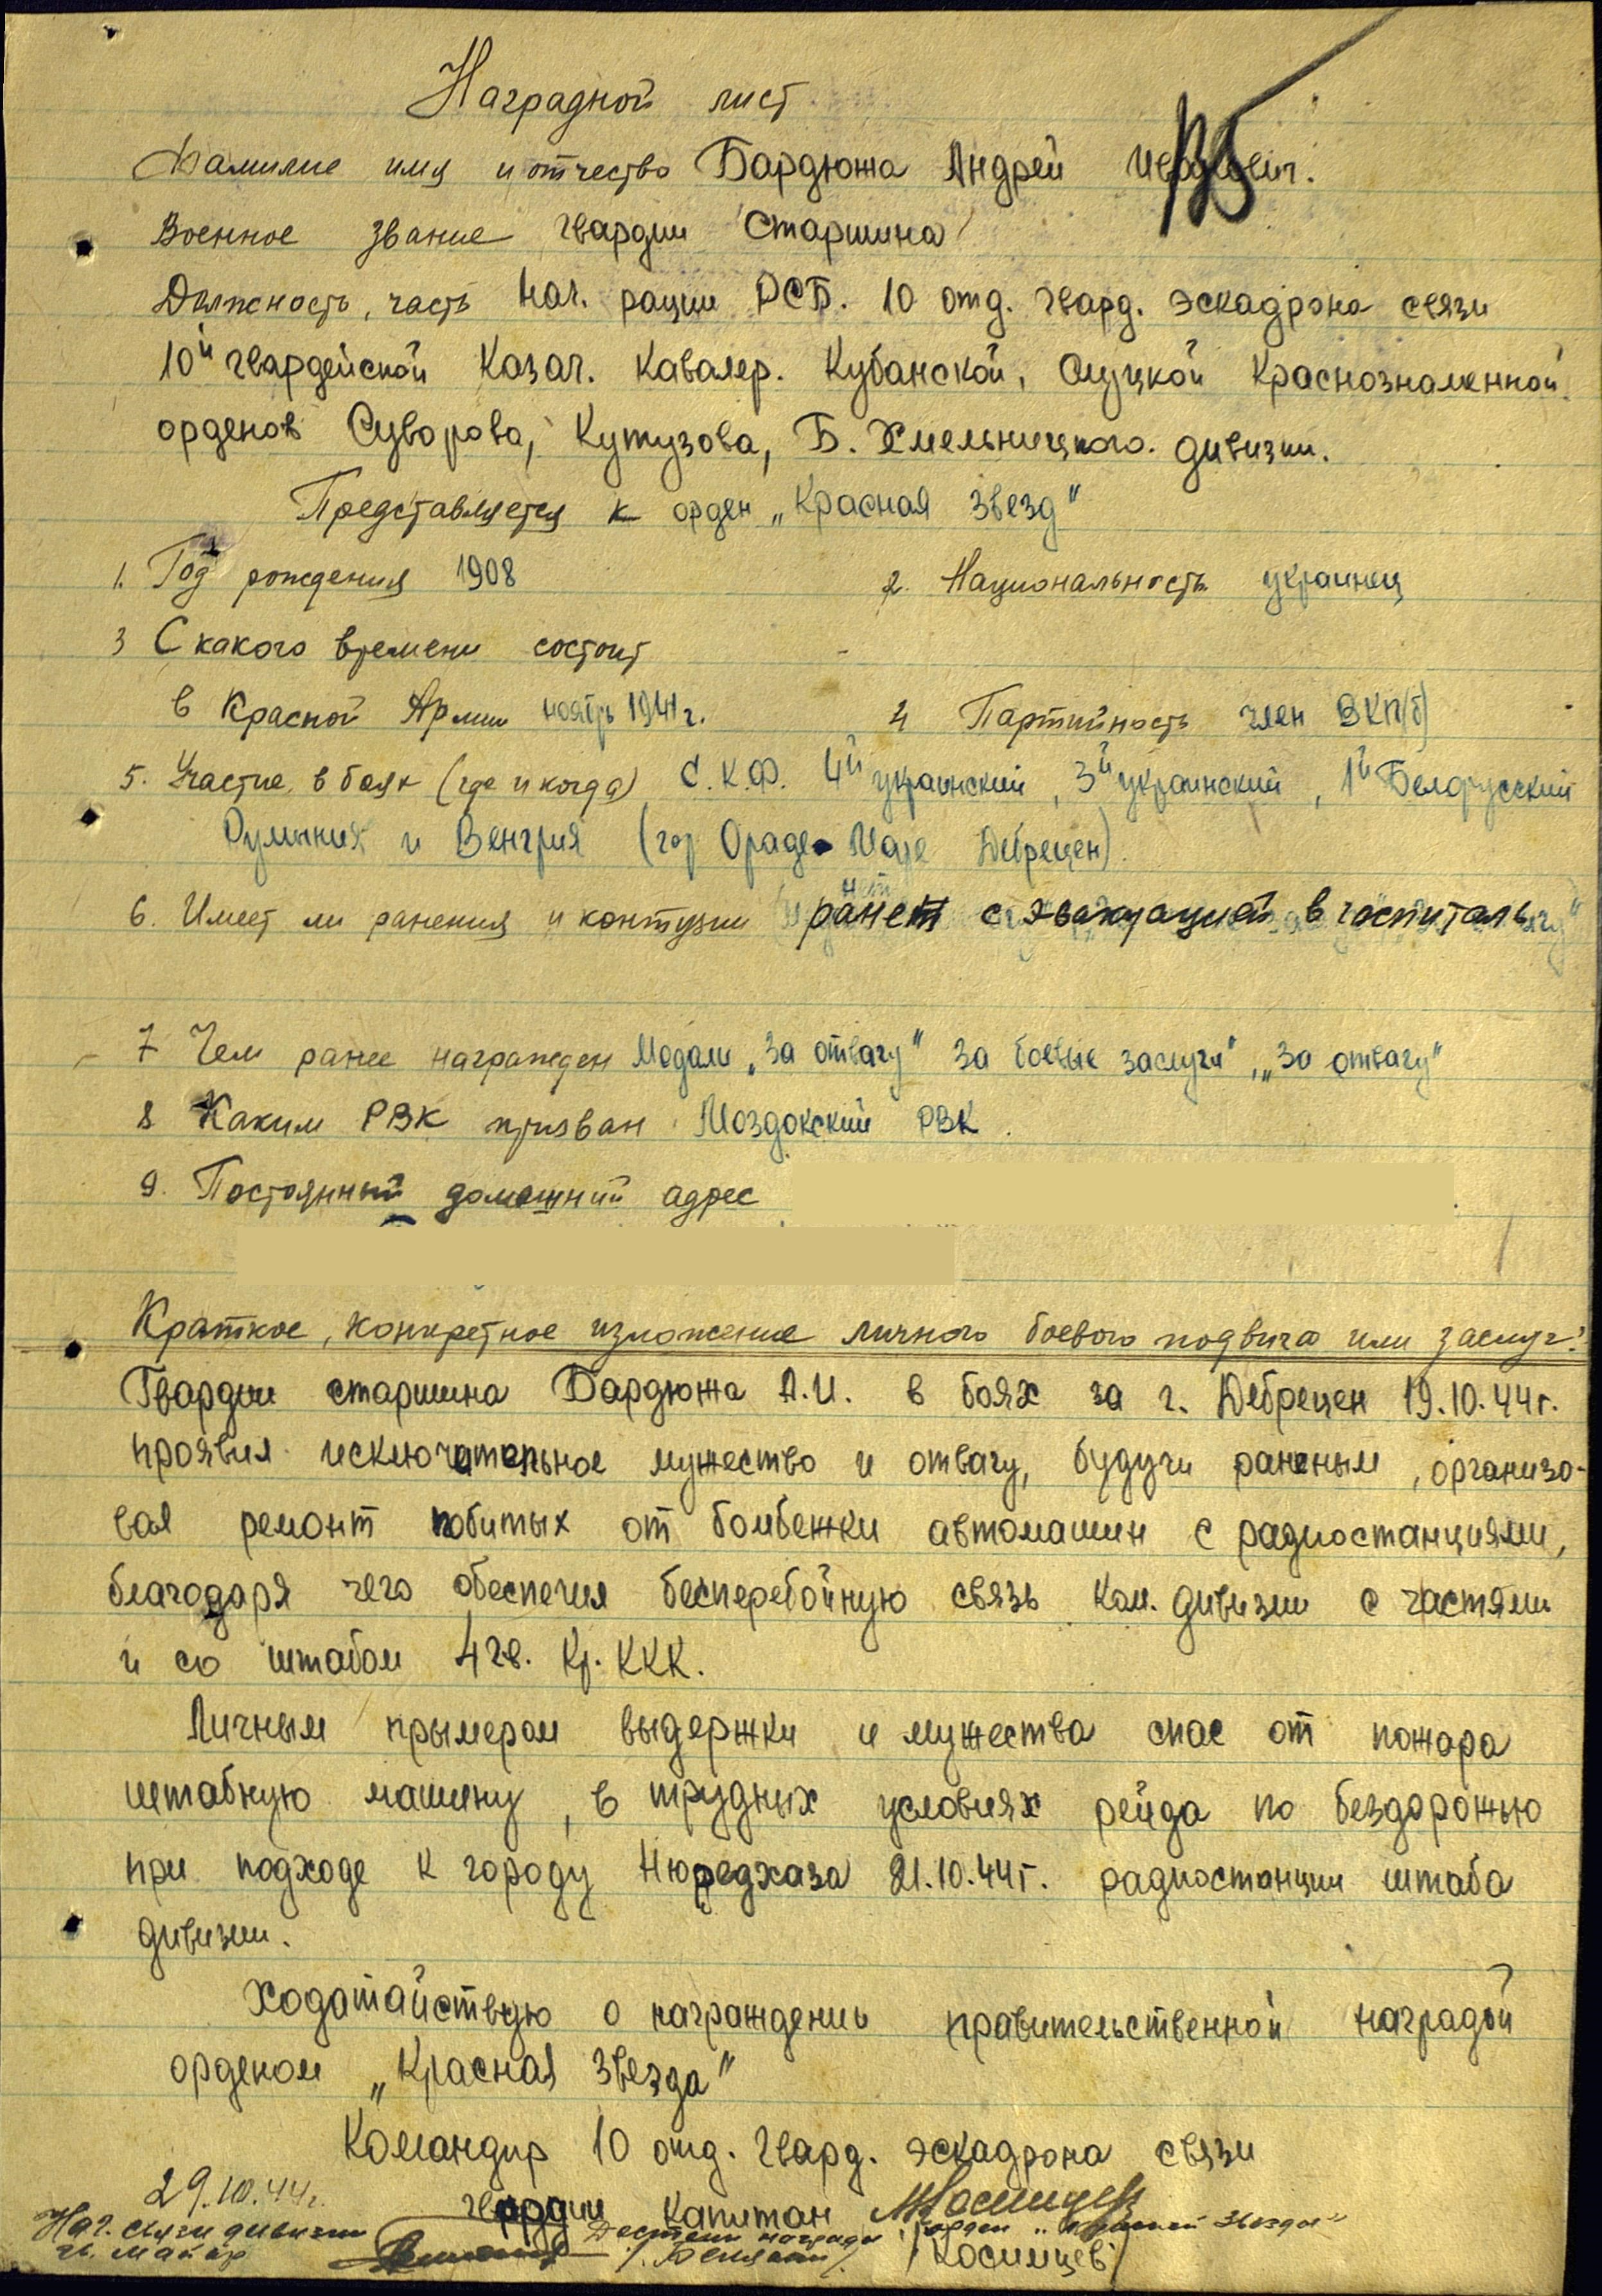 Наградной лист
Фамилие имя и отчество Бардюжа Андрей
Военное звание гвардии Старшина
Должность, часть Нач. рации РСБ. 10 отд. гвард. эскадрона связи
10й гвардейской Казач. Кавалер. Кубанской, Слуцкой Краснознаменной
орденов Суворова, Кутузова, Б. Хмельницкого. дивизии.
Представляется к орден „Красная Звезд"
1. Год рождения 1908 2. Национальность украинец
3 С какого времени состоит
в Красной Армии ноябрь 1941 г. 4 Партийность член ВКП(б)
5. Участие в боях (где и когда) С.К.Ф. 4й украинский, 3й украинский, 1й Белорусский
Румыния и Венгрия (гор Ораде Маре Дебрецен).
6. Имеет ли ранения и контузии ранен с эвакуацией в госпиталь
7 Чем ранее награжден Медали „За отвагу" За боевые заслуги", „За отвагу"
8 Каким РВК призван Моздокский РВК.
9. Постоянный домашний адрес
Краткое, конкретное изложение личного боевого подвига или заслуг:
Гвардии старшина Бардюжа А.И. в боях за г. Дебрецен 19.10.44г.
проявил исключительное мужество и отвагу, будучи раненым, организо-
вал ремонт побитых от бомбежки автомашин с радиостанциями,
благодаря чего обеспечил бесперебойную связь ком. дивизии с частями
и со штабом 4 гв. Кр. ККК.
Личным прымером выдержки и мужества спас от пожара
штабную машину, в трудных условиях рейда по бездорожью
при подходе к городу Нюредхаза 21.10.44г. радиостанции штаба
дивизии.
Ходатайствую о награждении правительственной наградой
орденом „Красная Звезда"
Командир 10 отд. гвард. эскадрона связи
29.10.44г. гвардии капитан
Нач. связи дивизии Достоин награды орден „Красной Звезды"
гв. майор /Косимцев/